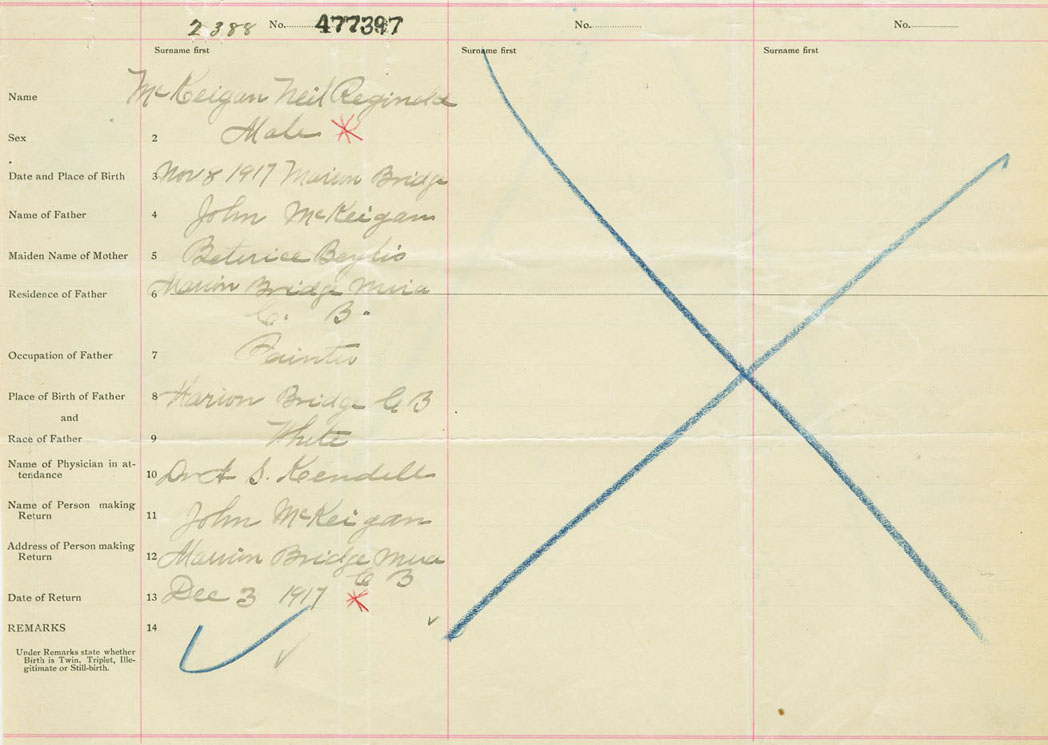 2388 No. 477397 No. No.
Surname first Surname first Surname first
Name McKeigan Neil Reginald
Sex 2 Male
Date and Place of Birth 3 Nov 8 1917 Marion Bridge
Name of Father 4 John McKeigan
Maiden Name of Mother 5 Beterice Baylis
Residence of Father 6 Marion Bridge Mira
C. B.
Occupation of Father 7 Painter
Place of Birth of Father 8 Marion Bridge C B
and
Race of Father 9 White
Name of Physician in at-
tendance 10 Dr A S. Kendell
Name of Person making
Return 11 John McKeigan
Address of Person making
Return 12 Marion Bridge Mira
C B
Date of Return 13 Dec 3 1917
REMARKS 14
Under Remarks state whether
Birth is Twin, Triplet, Ille-
gitimate or Still-birth.